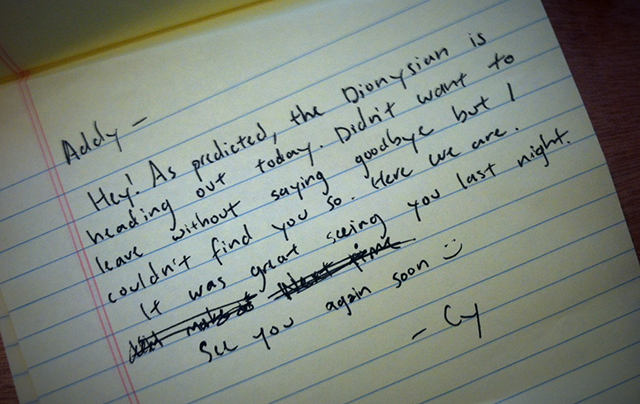 Addy -
Hey! As predicted, the Dionysian is
heading out today. Didn't want to
leave without saying goodbye but I
couldn't find you so. Here we are.
It was great seeing you last night.
Next time
See you again soon :)
- Cy